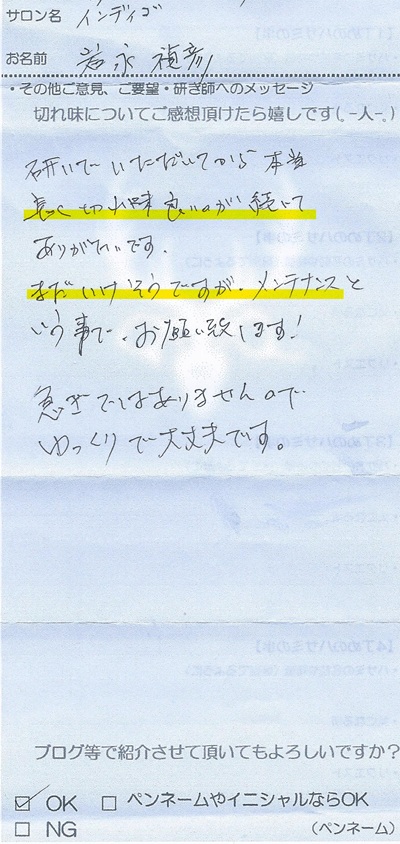 サロン名 インディゴ
お名前 岩永禎彦
・その他ご意見、ご要望・研ぎ師へのメッセージ
切れ味についてご感想頂けたら嬉しです(。-人-。)
研いで いただいてから 本当
長く切れ味良いのが続いて
ありがたいです。
まだいけそうですが、メンテナンスと
いう事で、お願い致します!
急ぎではありませんので
ゆっくりで大丈夫です。
ブログ等で紹介させて頂いてもよろしいですか?
☑ OK □ ペンネームやイニシャルならOK
□ NG (ペンネーム)